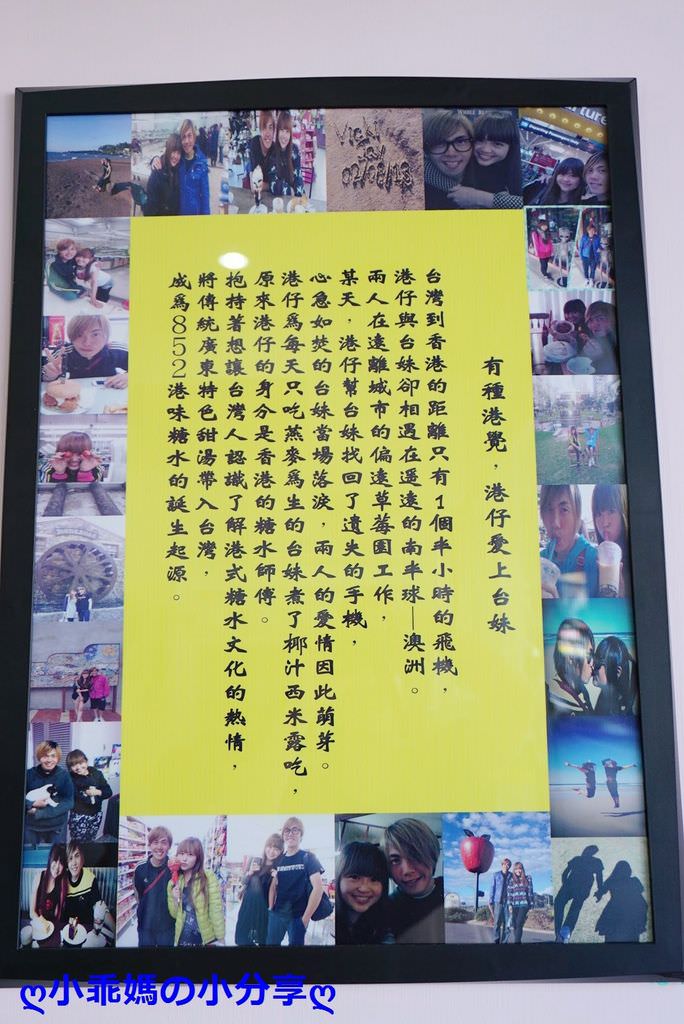 有種港覺，港仔愛上台妹
台灣到香港的距離只有1個半小時的飛機，
港仔與台妹卻相遇在遥遠的南半球—澳洲。
兩人在遠離城市的偏遠草莓園工作，
某天，港仔幫台妹找回了遺失的手機，
心急如焚的台妹當場落淚，兩人的愛情因此萌芽。
港仔爲每天只吃燕麥爲生的台妹煮了椰汁西米露吃，
原來港仔的身分是香港的糖水師傅。
抱持著想讓台灣人認識了解港式糖水文化的熱情，
將傳統廣東特色甜湯帶入台灣，
成爲852港味糖水的誕生起源。
Vicki
Jay
02/08/13
ღ小乖媽の小分享ღ